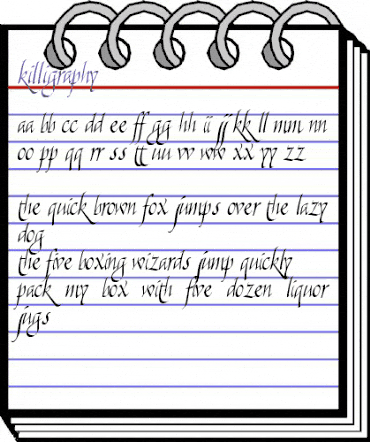 killigraphy
aa bb cc dd ee ff gg hh ii jj kk ll mm nn
oo pp qq rr ss tt uu vv ww xx yy zz
the quick brown fox jumps over the lazy
dog
the five boxing wizards jump quickly
pack my box with five dozen liquor
jugs